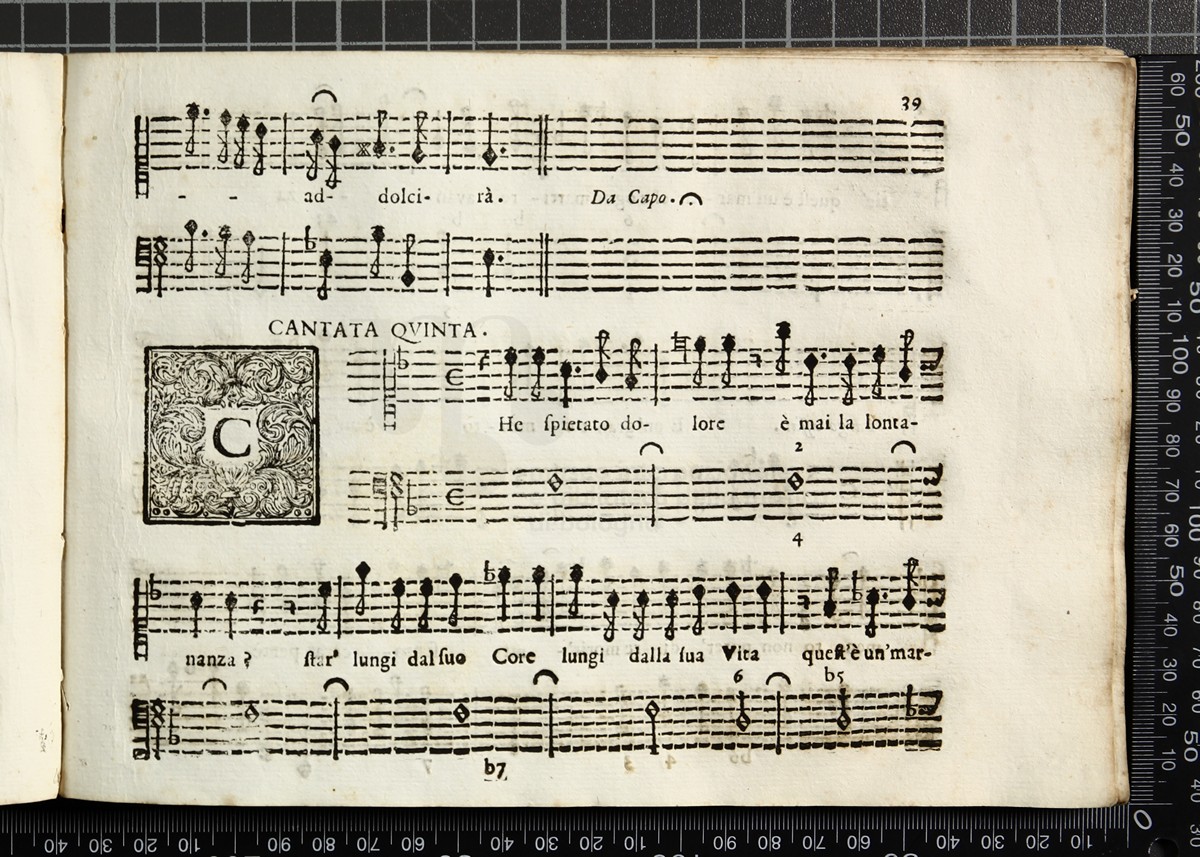 39
- - ad- dolci- rà. Da Capo.
CANTATA QVINTA.
C
He ſpietato do- lore è mai la lonta-
2
4
nanza ? ſtar' lungi dal ſuo Core lungi dalla ſua Vita queſt'è un'mar-
6 b5
b7